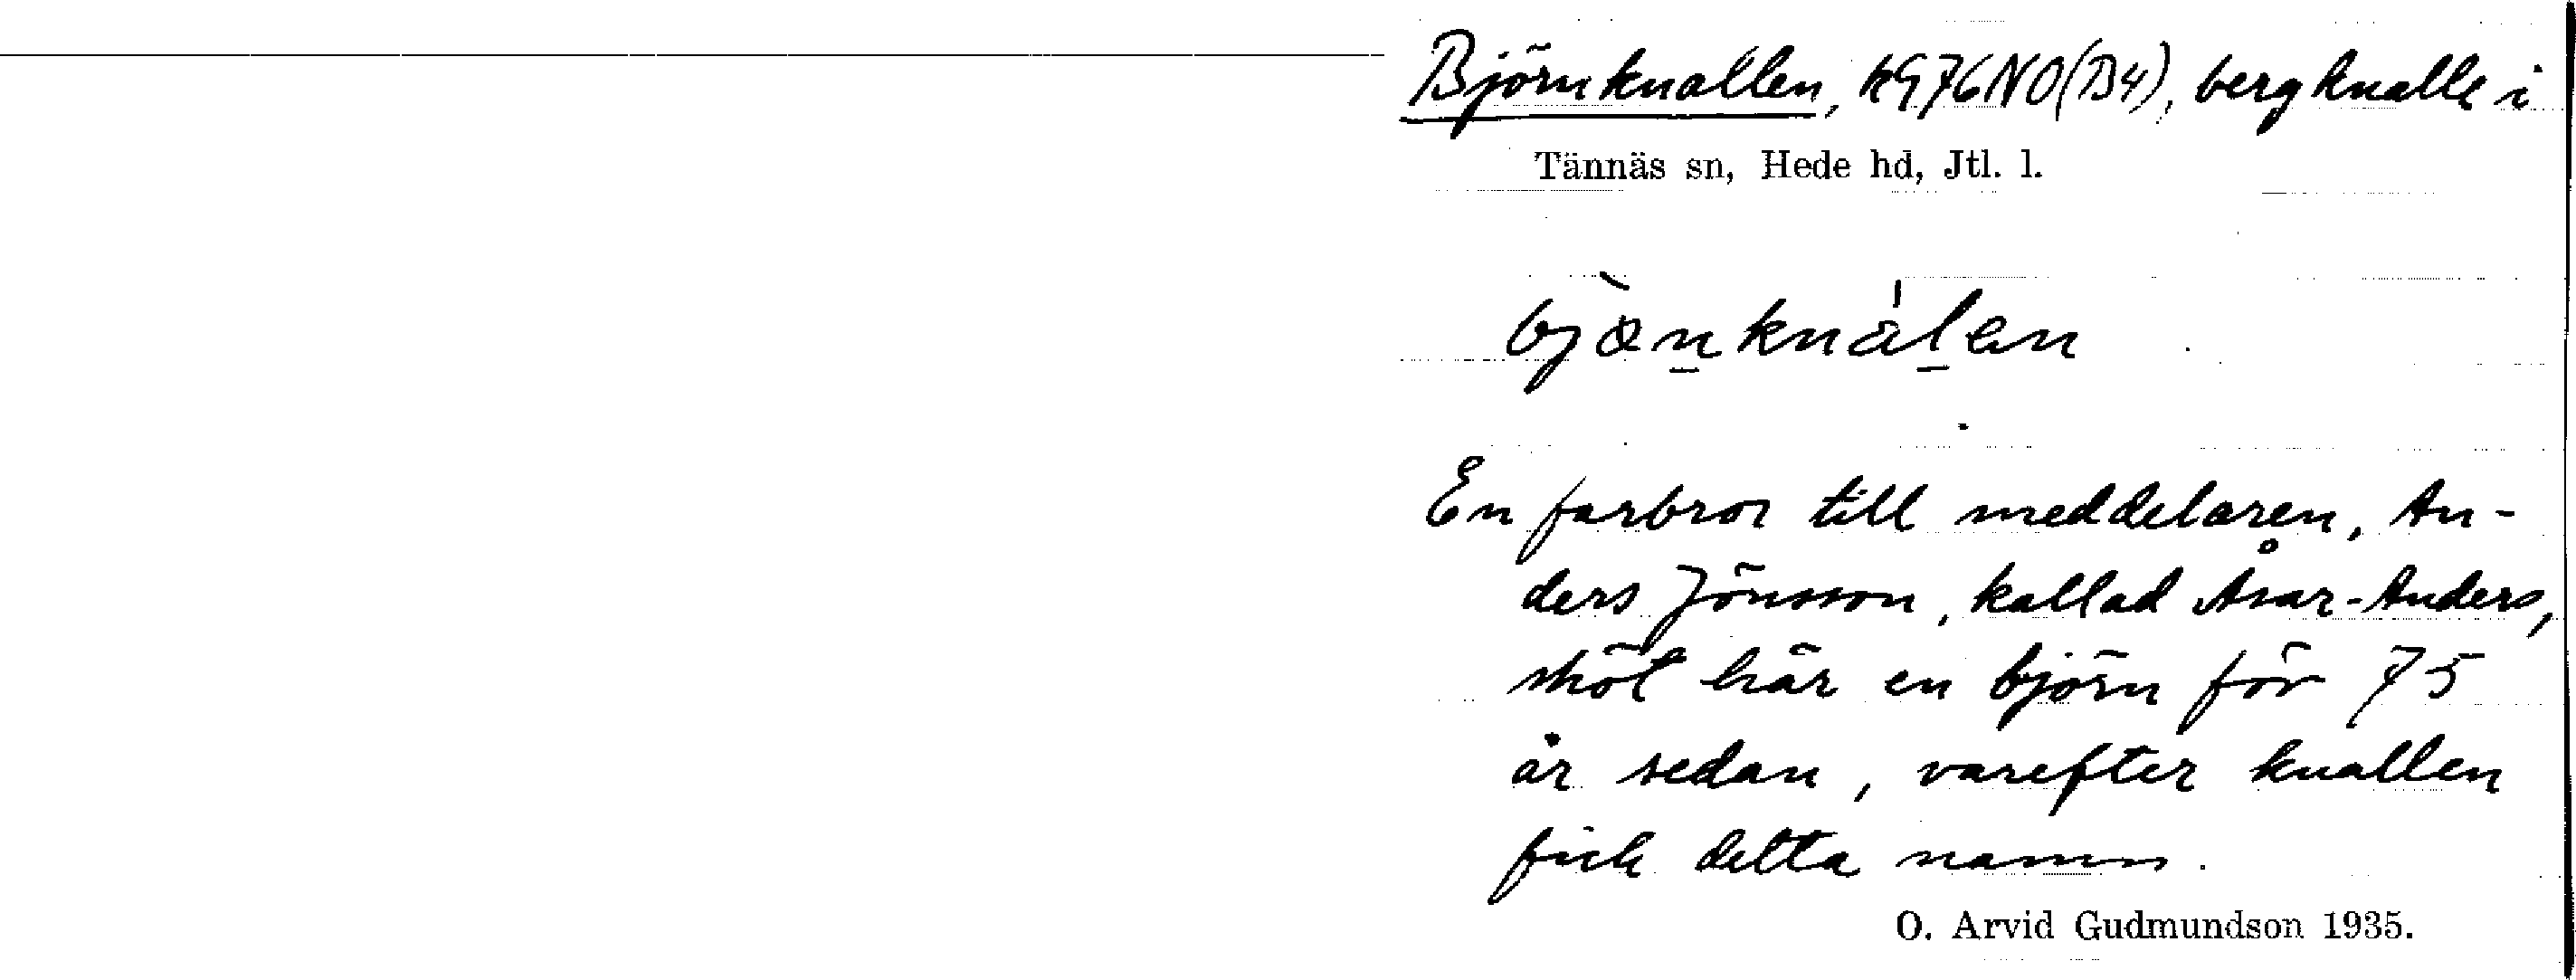 Björnknallen, kG76NO(B4), bergknalle i
Tännäs sn, Hede hd, Jtl. l.
En farbror till meddelaren, An-
ders Jönsson, kallad Åsar-Anders,
sköt här en björn för 75
år sedan, varefter knallen
fick detta namn.
O. Arvid Gudmundson 1935.